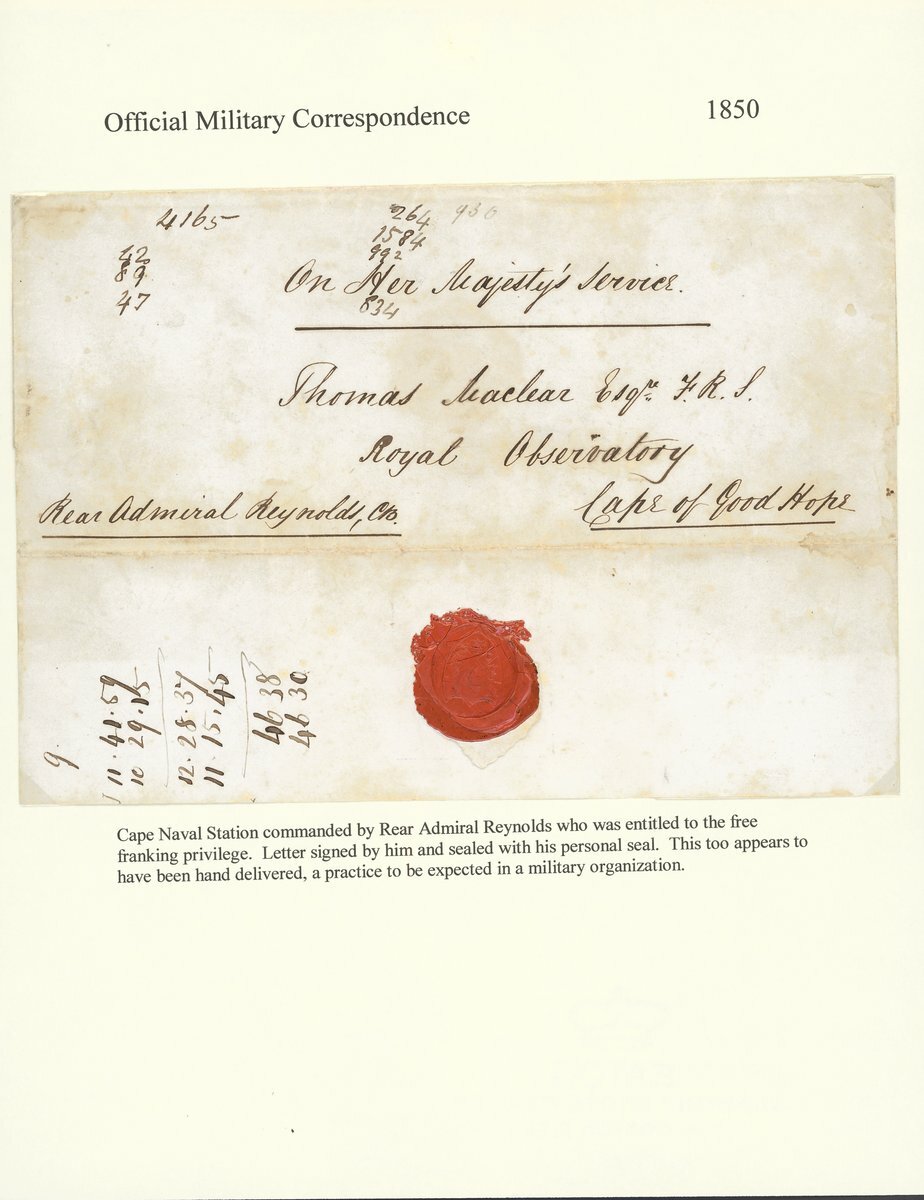 Official Military Correspondence
1850
4165
264
936
1584
992
42
89
47
On Her Majesty's Service.
834
Thomas Maclear Esqre. F. R. S.
Royal Observatory
Rear Admiral Reynolds, CB.
Cape of Good Hope
9.
11 . 41 . 59
10 29 . 15
12 . 28 . 37
11 . 15 . 45
46 38
46 30
Cape Naval Station commanded by Rear Admiral Reynolds who was entitled to the free
franking privilege. Letter signed by him and sealed with his personal seal. This too appears to
have been hand delivered, a practice to be expected in a military organization.